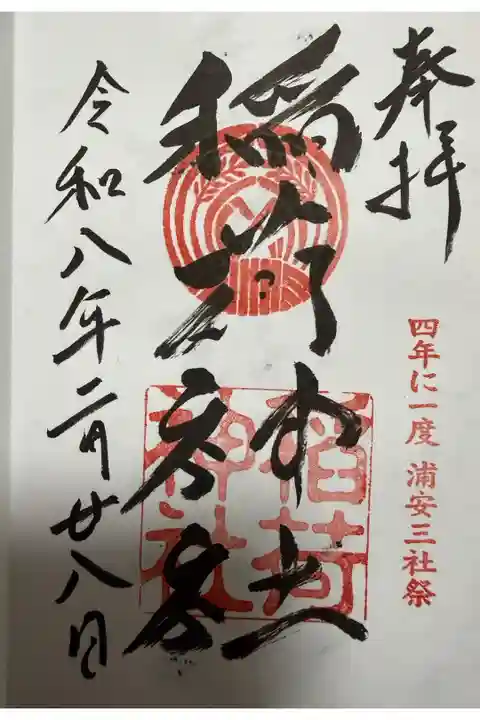 奉拝
四年に一度 浦安三社祭
稲荷
神社
令和八年二月廿八日